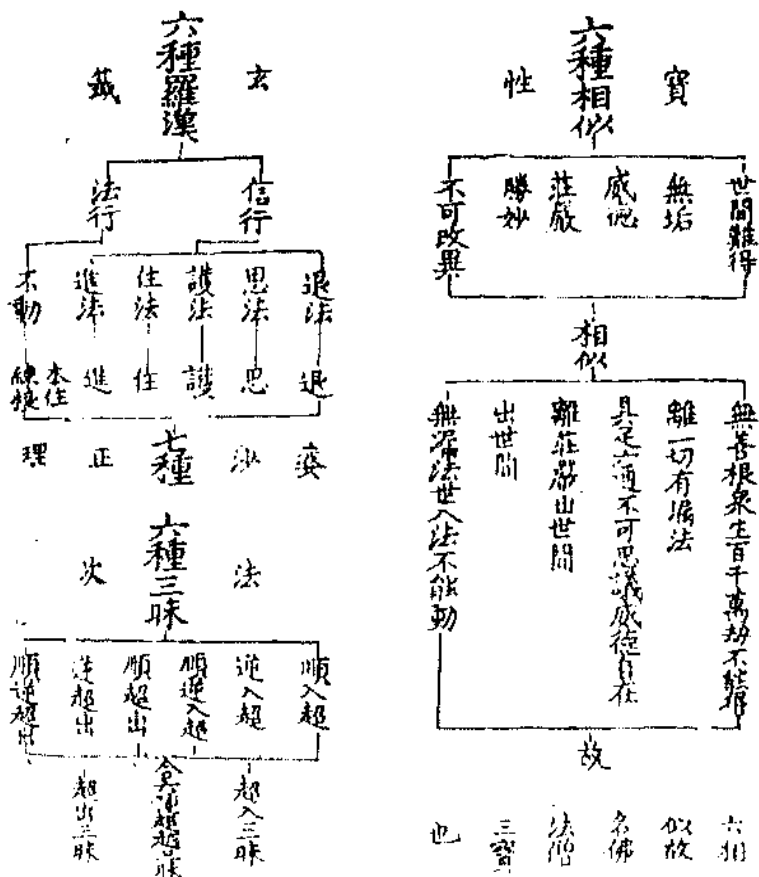 六種相似
寶性
世間難得
無垢
威德
莊嚴
勝妙
不可改異
相似
無善根衆生百千萬劫不能得
離一切有漏法
具足六通不可思議威德自在
離莊嚴出世間
出世間
無漏法世入法不能動
故
六相
似故
名佛
法僧
三寶
也
六種羅漢
玄籤
信行
法行
退法
思法
護法
住法
進法
不動
退
思
護
住
進
本住
練根
七種
婆沙
正理
六種三昧
法次
順入超
逆入超
順逆入超
順超出
逆超出
順逆超出
超入三昧
超出三昧